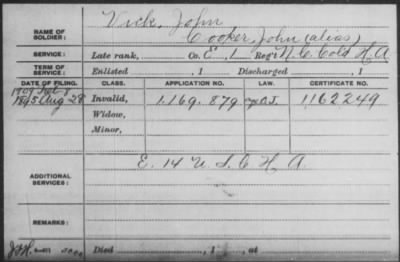 Vick, John
NAME OF SOLDIER: Cooker, John (alias)
SERVICE: Late rank, Co. E, 1 Reg't N.C. Cold H.A.
TERM OF SERVICE: Enlisted , 1 Discharged , 1
DATE OF FILING. CLASS. APPLICATION NO. LAW. CERTIFICATE NO.
1895 Aug 28 Invalid, 1.169.879 1162249
Widow,
Minor,
ADDITIONAL SERVICES: E. 14 U.S.C.H.A.
REMARKS:
Died , 1 , at